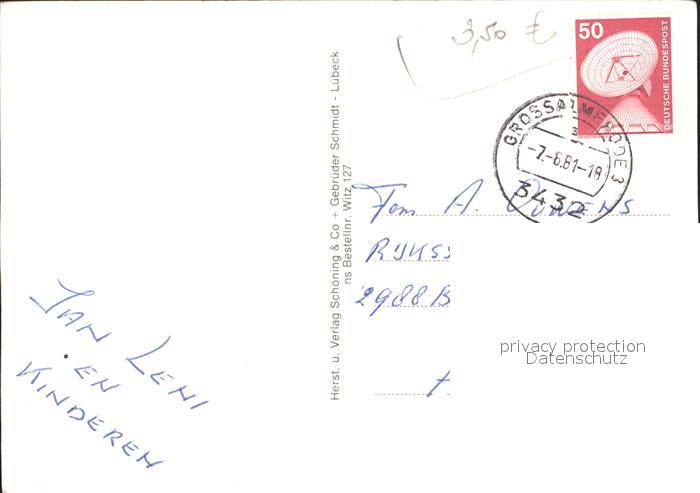 3,50 €
50
DEUTSCHE BUNDESPOST
GROSSALMERODE 3
-7.-8.81-18
3432
Herst. u. Verlag Schöning & Co + Gebrüder Schmidt - Lübeck
ns Bestellnr. Witz 127
Fam A.
RIJKSS
2988 B
privacy protection
Datenschutz
JAN LENI
EN
KINDEREN